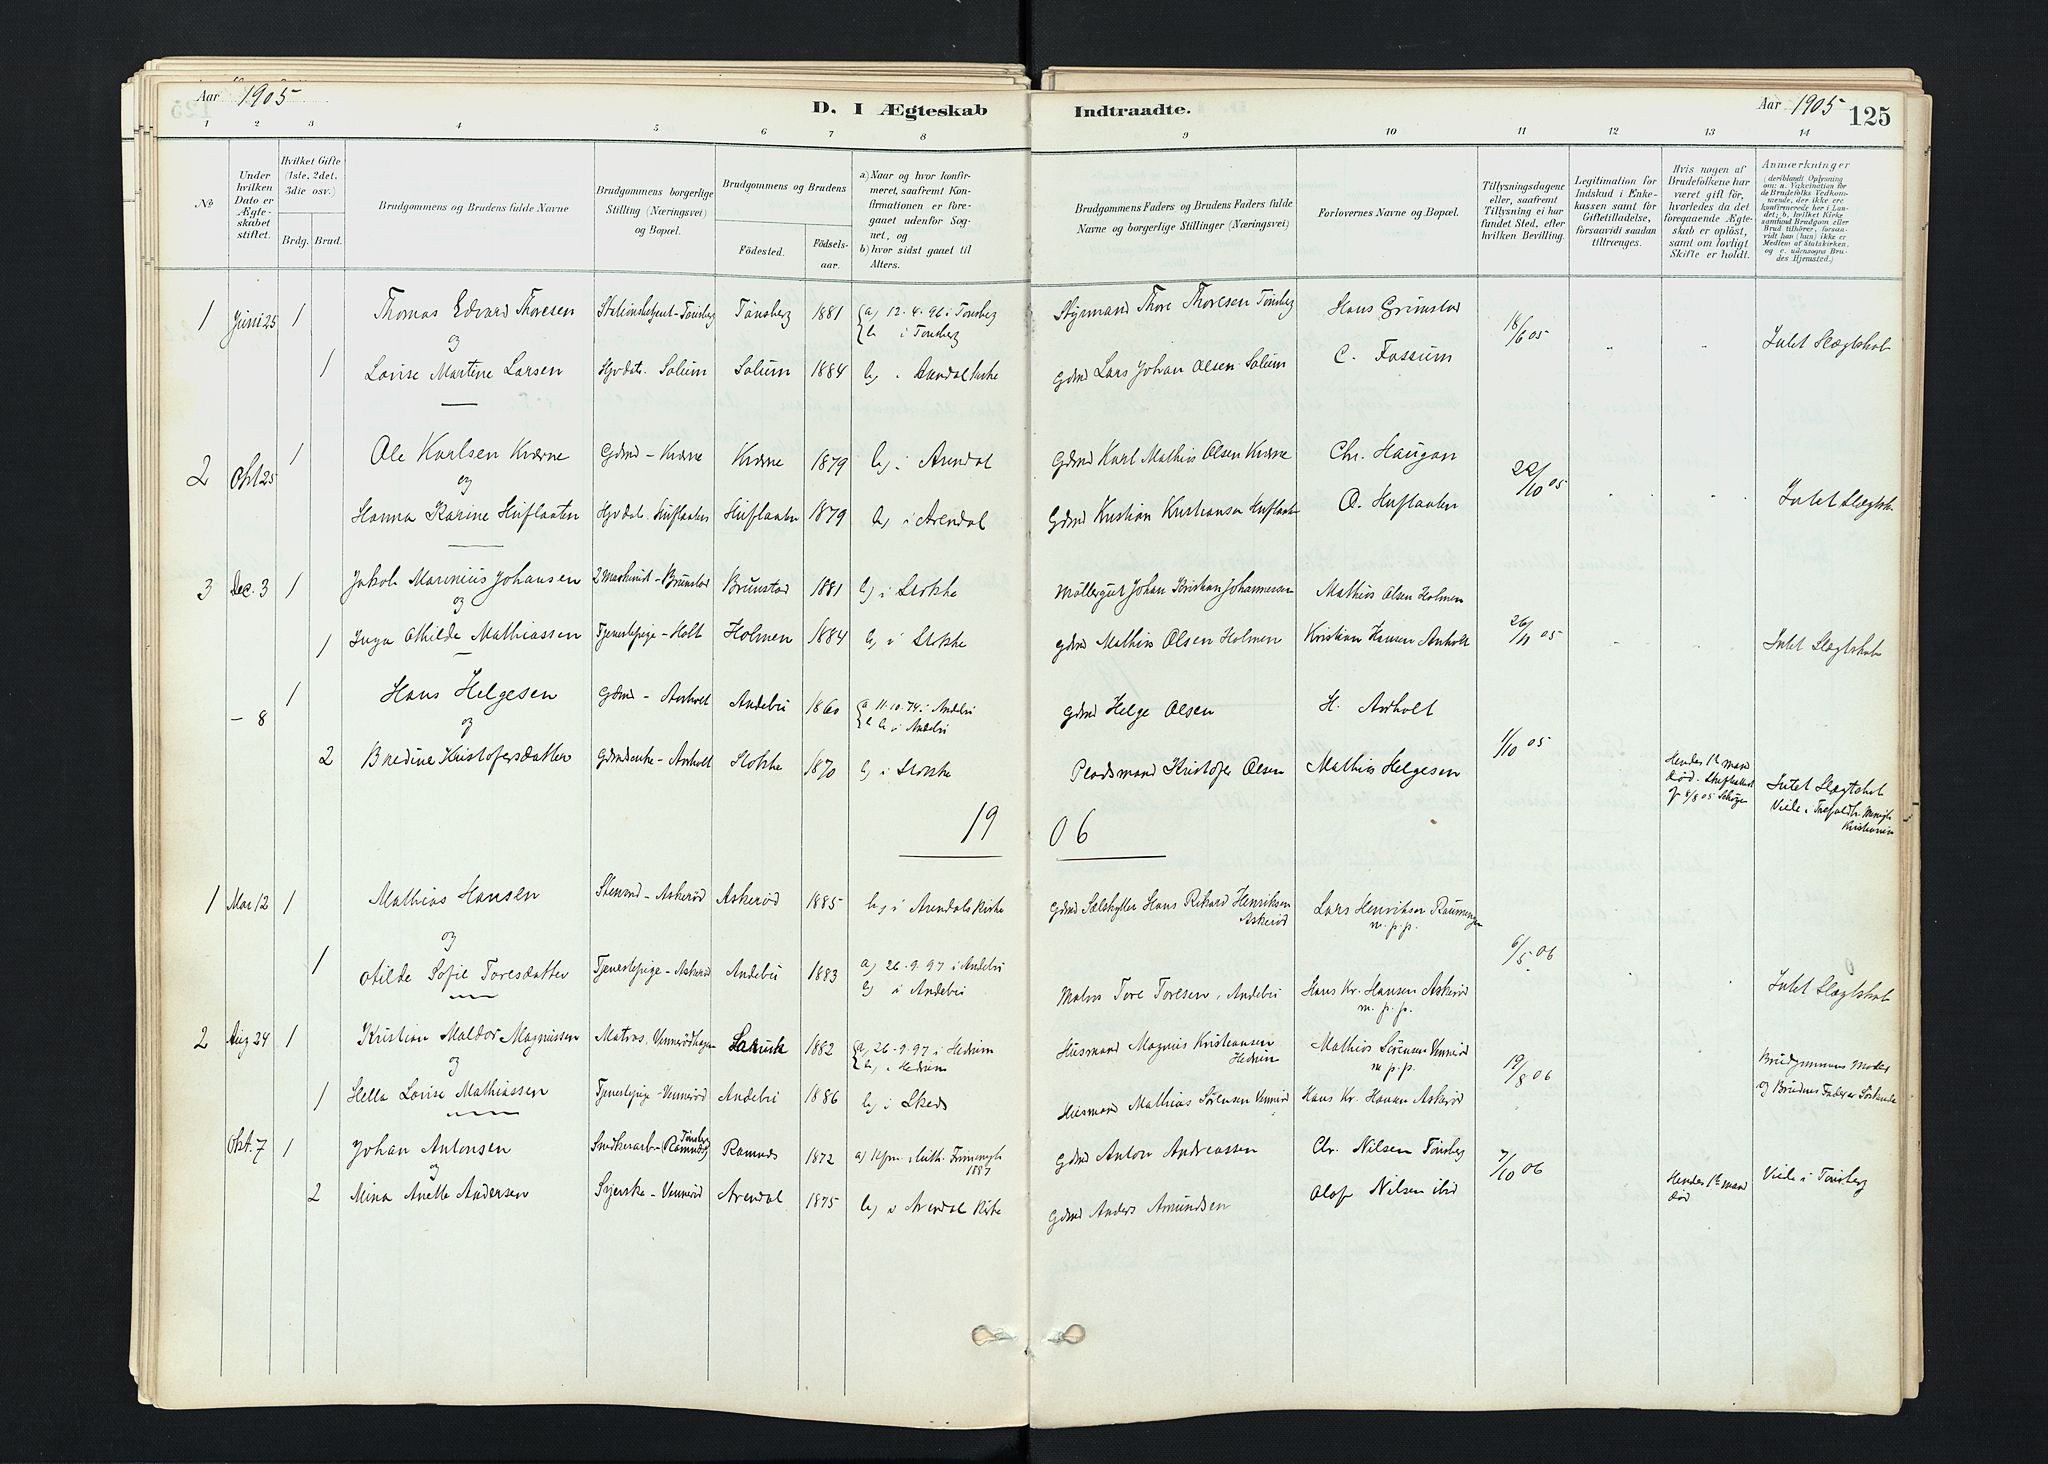 Aar 1905
D. I Ægteskab Indtraadte.
Aar 1905 125
1 2 3 4 5 6 7 8 9 10 11 12 13 14
No
Under hvilken Dato er Ægteskabet stiftet.
Hvilket Gifte (1ste, 2det, 3die osv.)
Brdg. Brud.
Brudgommens og Brudens fulde Navne
Brudgommens borgerlige Stilling (Næringsvei) og Bopæl.
Brudgommens og Brudens
Fødested. Fødselsaar.
a) Naar og hvor konfirmeret, saafremt Konfirmationen er foregaaet udenfor Sognet, og
b) hvor sidst gaaet til Alters.
Brudgommens Faders og Brudens Faders fulde Navne og borgerlige Stillinger (Næringsvei)
Forlovernes Navne og Bopæl.
Tillysningsdagene eller, saafremt Tillysning ei har fundet Sted, efter hvilken Bevilling.
Legitimation for Indskud i Enkekassen samt for Giftetilladelse, forsaavidt saadan tiltrænges.
Hvis nogen af Brudefolkene har været gift før, hvorledes da det foregaaende Ægteskab er opløst, samt om lovligt Skifte er holdt.
Anmærkninger (deriblandt Oplysning om: a. Vakcination for de Brudefolks Vedkommende, der ikke ere konfirmerede her i Landet; b. hvilket Kirkesamfund Brudgom eller Brud tilhører, forsaavidt han (hun) ikke er Medlem af Statskirken, og c. udensogns Brudes Hjemsted.)
1 Juni 25 1 Thomas Edvard Thoresen Stationsbetjent - Tønsberg Tønsberg 1881 a) 12.4.96 i Tønsberg
b i Tønsberg Styrmand Thore Thoresen Tønsberg Hans Grimstad 18/6 05
og
1 Lovise Martine Larsen Hjv. dat. Solum Solum 1884 b) i Arendal kirke Gdmd Lars Johan Olsen Solum C. Fossum " " Intet Slægtskab
2 Okt 25 1 Ole Karlsen Kværne Gdmd - Kværne Kværne 1879 b) i Arendal Gdmd Karl Mathias Olsen Kværne Chr. Haugan 22/10 05
og
Hanna Karine Huflaaten Hjv dat. Huflaaten Huflaaten 1879 b) i Arendal Gdmd Kristian Kristiansen Huflaaten O. Huflaaten " " Intet Slægtsk
3 Dec. 3 1 Jakob Marinius Johansen 2 Maskinist - Brunstad Brunstad 1881 b) i Stokke Møllergut Johan Kristian Johannessen Mathias Olsen Holmen 26/11 05
og
1 Inga Otilde Mathiassen Tjenestepige - Holt Holmen 1884 b) i Stokke Gdmd Mathias Olsen Holmen Kristian Hansen Anholt " " Intet Slægtskab
- 8 1 Hans Helgesen Gdmd - Anholt Andebu 1860 a 11.10.74 i Andebu
b b i Andebu Gdmd Helge Olsen H. Anholt 1/10 05
og
2 Bredine Kristofersdatter Gdmdsenke - Anholt Stokke 1870 b) i Stokke Pladsmand Kristofer Olsen Mathias Helgesen Hendes 1ste mand død. Skifteattest
Intet Slægtskab
Viede i Trefoldh. Menigh Kristiania
1906
1 Mai 12 1 Mathias Hansen Askerød Askerød 1885 b) i Arendals kirke Gdmd Selskytter Hans Rikard Henriksen Askerød Lars Henriksen m. p. p. 6/5 06
og
1 Otilde Sofie Toresdatter Tjenestepige - Askerød Andebu 1883 a) 26.9.97 i Andebu
b) i Andebu Matros Tore Toresen, Andebu Hans Kr. Hansen Askerød m. p. p. Intet Slægtskab
2 Aug 24 1 Kristian Maldor Magnussen Matros, Vennerødhagen 1882 a) 26.9.97 i Hedrum
b) i Hedrum Husmand Magnus Kristiansen Hedrum Mathias Sørensen Vennerød m. p. p. 19/8 06 Brudgommens Moder
og Brudens Fader er Søskende
og
1 Hella Lovise Mathiassen Tjenestepige - Vennerød Andebu 1886 b) i Skeds Husmand Mathias Sørensen Vennerød Hans Kr. Hansen Askerød
Okt. 7 1 Johan Antonsen Snedkerarb. - Tønsberg Ramnes 1872 a) 1887 Gdmd Anton Andreassen Chr. Nilsen Tønsberg 7/10 06
og
2 Mina Anette Andersen Syerske - Vennerød Arendal 1875 b) i Arendal kirke Gdmd Anders Amundsen Olof Nilsen ibid Hendes 1ste mand død Viede i Tønsberg